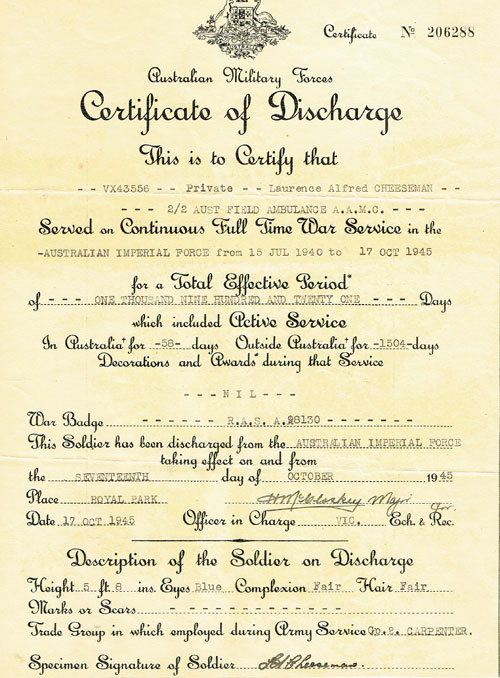 Certificate No 206288
Australian Military Forces
Certificate of Discharge
This is to Certify that
- - VX43556 - - Private - - Laurence Alfred CHEESEMAN - -
- - - 2/2 AUST FIELD AMBULANCE A.A.M.C. - - -
Served on Continuous Full Time War Service in the
-AUSTRALIAN IMPERIAL FORCE from 15 JUL 1940 to 17 OCT 1945
for a Total Effective Period*
of - - - ONE THOUSAND NINE HUNDRED AND TWENTY ONE - - - Days
which included Active Service
In Australia† for -58- days Outside Australia† for -1504-days
Decorations and Awards* during that Service
- - - N I L - - -
War Badge - - - - - - R.A.S. A.98130 - - - - - - -
This Soldier has been discharged from the AUSTRALIAN IMPERIAL FORCE
taking effect on and from
the SEVENTEENTH day of OCTOBER 1945
Place ROYAL PARK McCloskey Major
Date 17 OCT 1945 Officer in Charge VIC. Ech. & Rec.
Description of the Soldier on Discharge
Height 5 ft. 8 ins. Eyes Blue Complexion Fair Hair Fair
Marks or Scars - - - - - - - - - - - - -
Trade Group in which employed during Army Service Gp.2. CARPENTER.
Specimen Signature of Soldier LA Cheeseman.